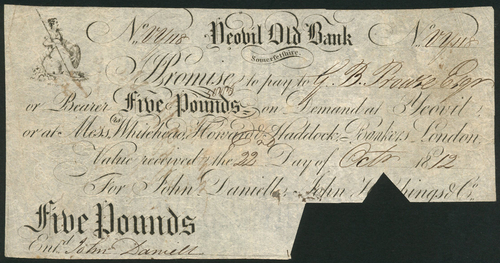 Yeovil Old Bank
Somersetshire
I Promise to pay to G. B. Prowse Esqr
or Bearer Five Pounds on Demand at Yeovil
or at Messrs Whitehead, Howard & Haddock, Bankers London,
Value received the 22nd Day of Octr 1812
For John Daniell, John
Five Pounds
Entd John Daniell